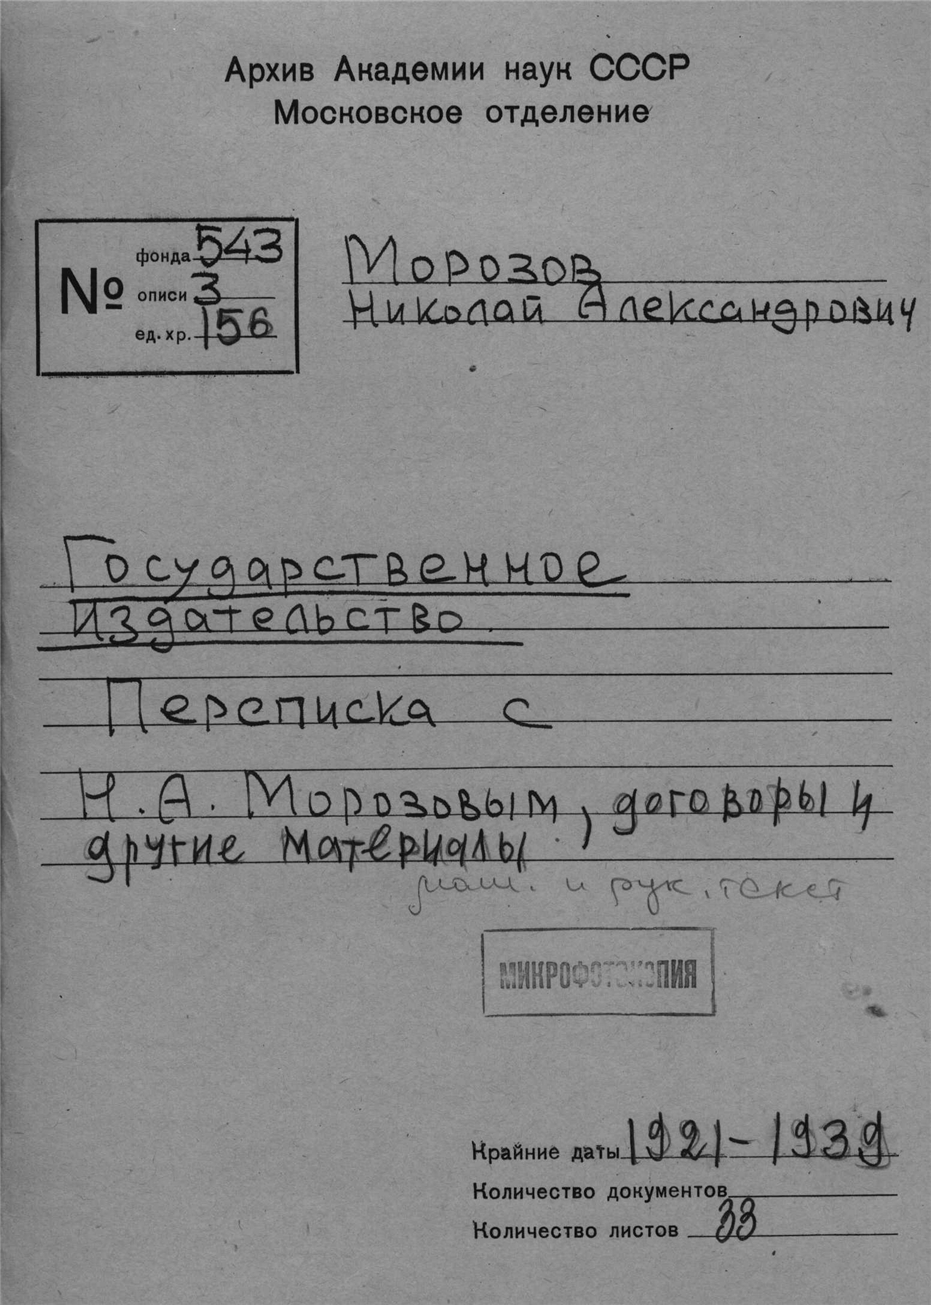 Архив Академии наук СССР
Московское отделение
№ фонда 543
описи 3
ед. хр. 156
Морозов
Николай Александрович
Государственное
издательство
Переписка с
Н.А. Морозовым, договоры и
другие материалы
маш. и рук. текст
МИКРОФОТОКОПИЯ
Крайние даты 1921-1939
Количество документов
Количество листов 33